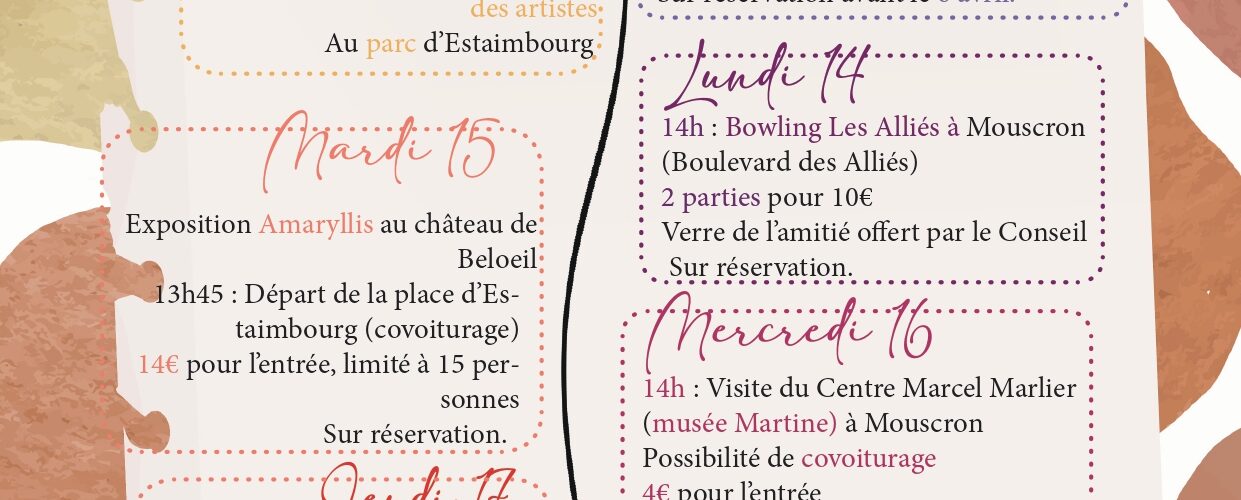 des artistes
Au parc d'Estaimbourg
Lundi 14
14h : Bowling Les Alliés à Mouscron
(Boulevard des Alliés)
2 parties pour 10€
Verre de l'amitié offert par le Conseil
Sur réservation.
Mardi 15
Exposition Amaryllis au château de
Beloeil
13h45 : Départ de la place d'Es-
taimbourg (covoiturage)
14€ pour l'entrée, limité à 15 per-
sonnes
Sur réservation.
Mercredi 16
14h : Visite du Centre Marcel Marlier
(musée Martine) à Mouscron
Possibilité de covoiturage
4€ pour l'entrée
Jeudi 17